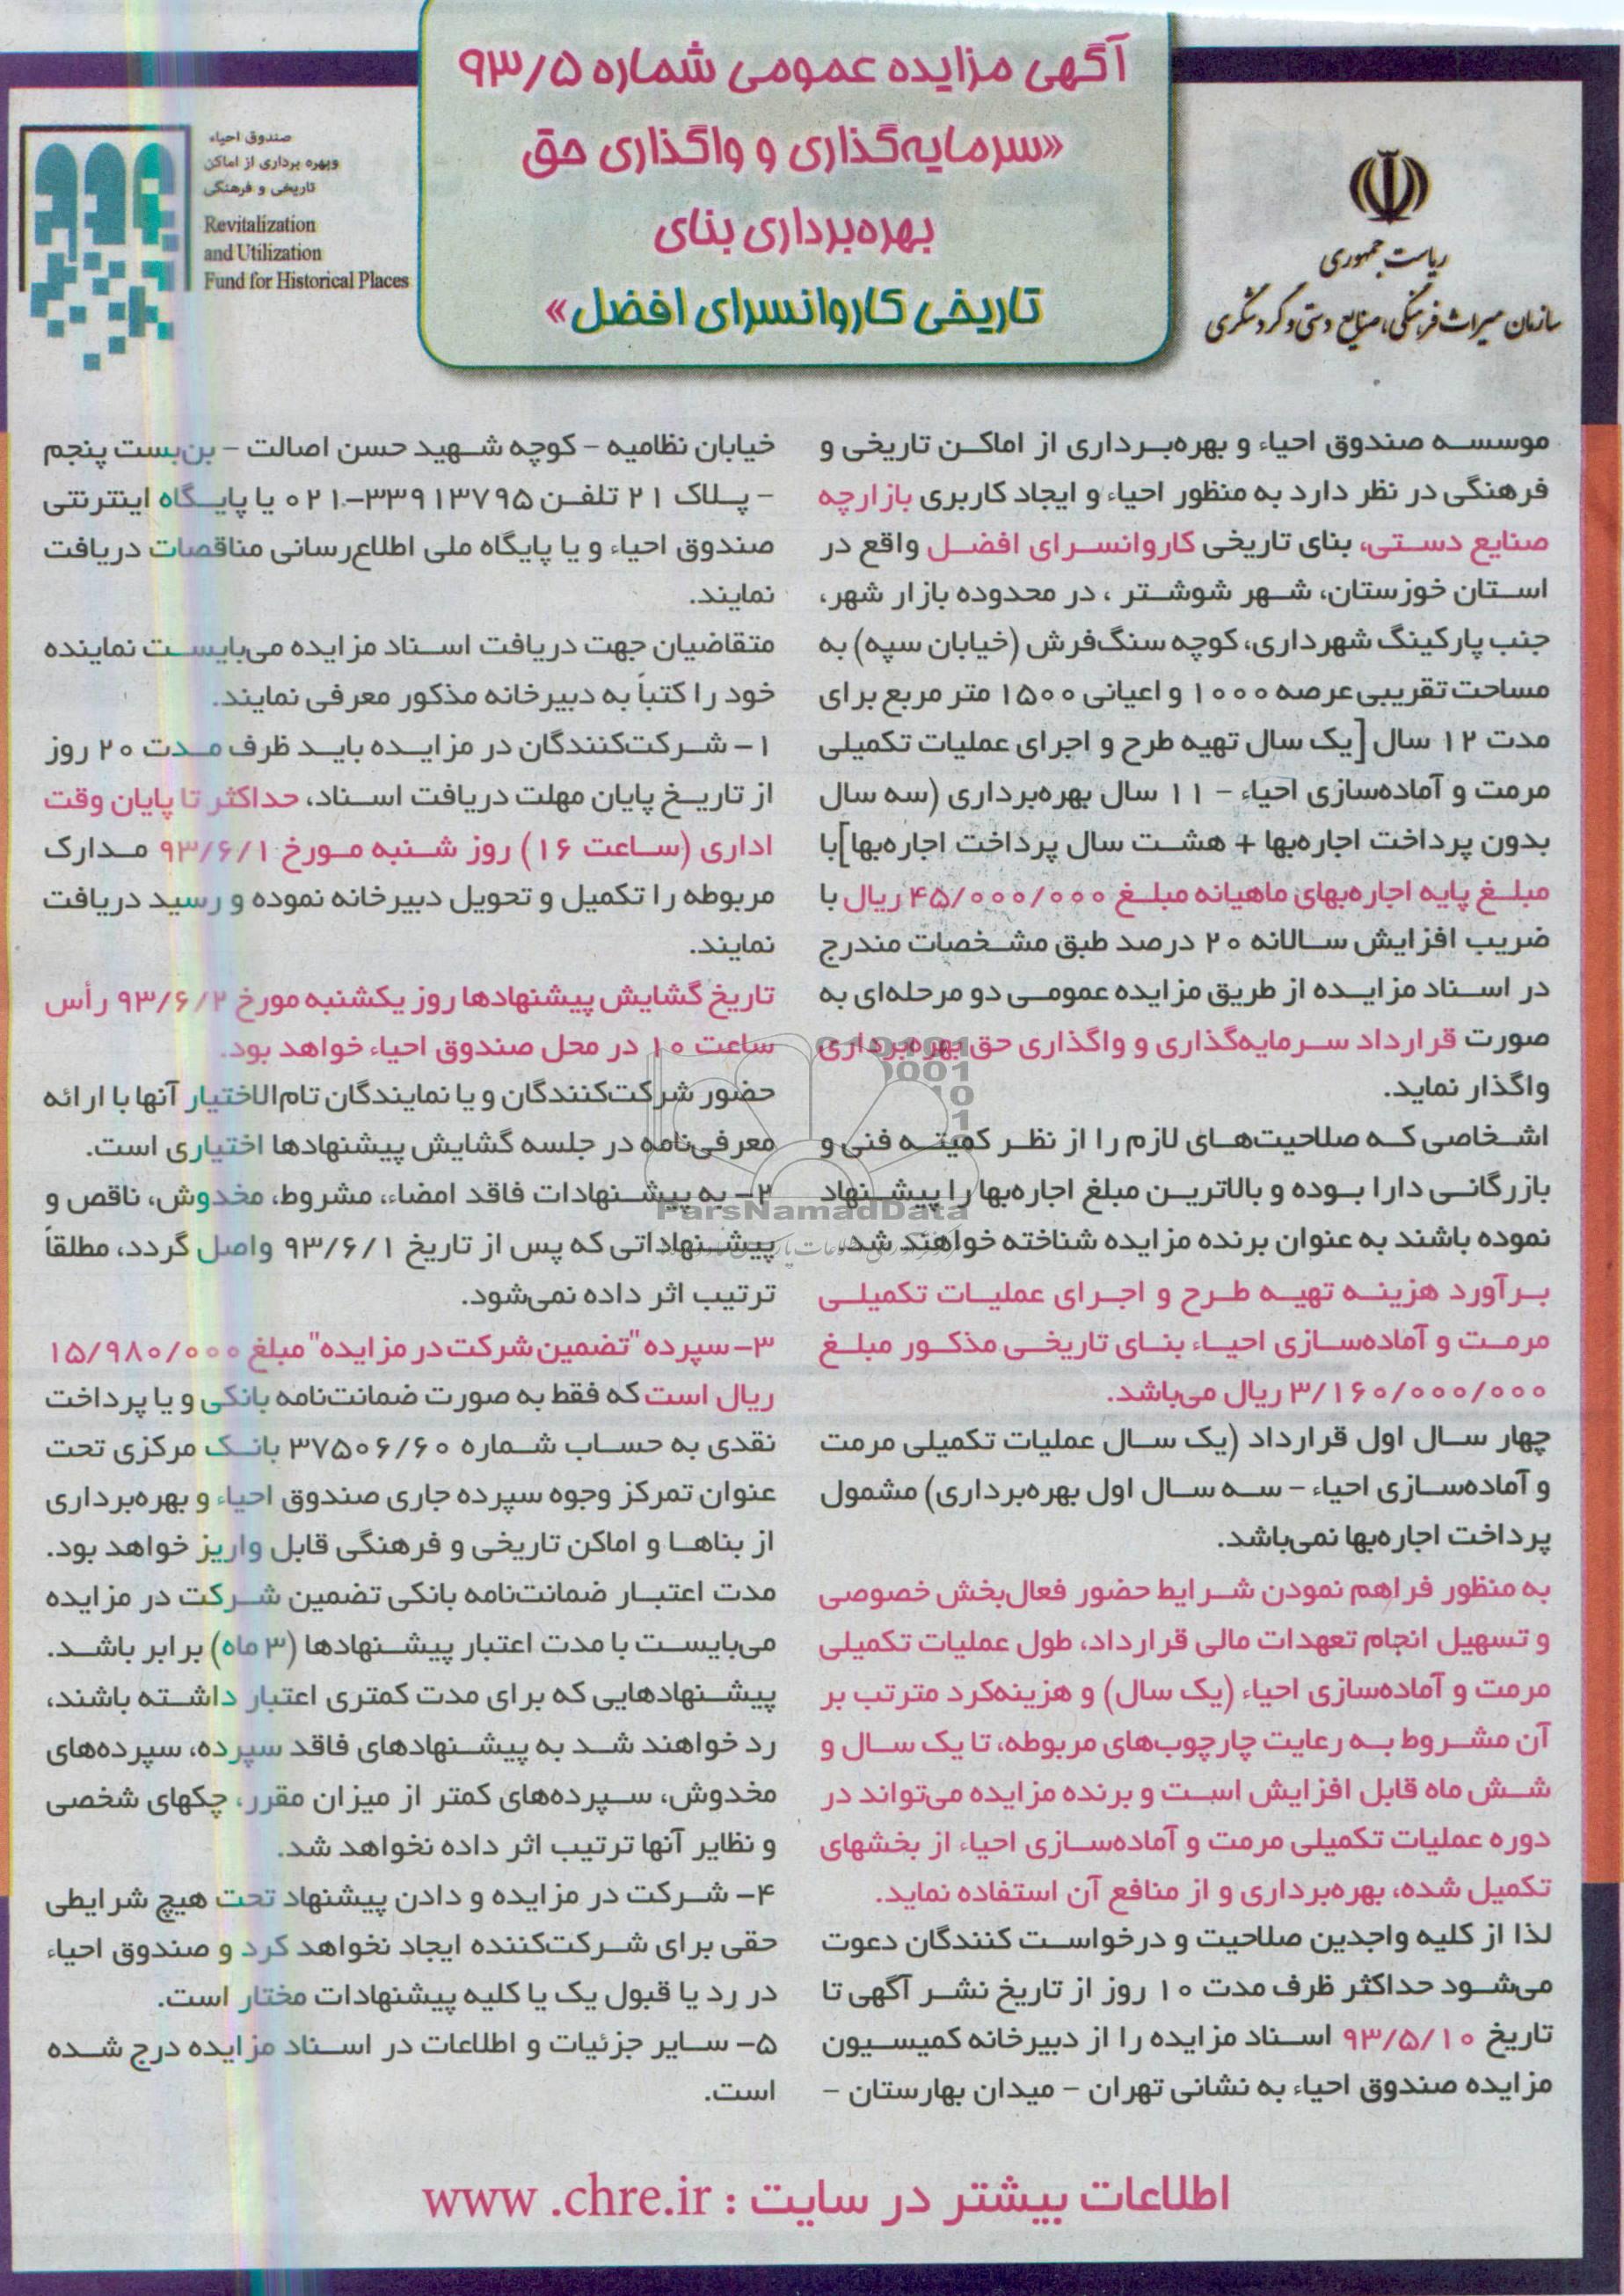 آگهی مزایده عمومی شماره ۹۳/۵
«سرمایه‌گذاری و واگذاری حق
بهره‌برداری بنای
تاریخی کاروانسرای افضل»
ریاست جمهوری
سازمان میراث فرهنگی، صنایع دستی و گردشگری
صندوق احیاء
وبهره برداری از اماکن
تاریخی و فرهنگی
Revitalization
and Utilization
Fund for Historical Places
موسسه صندوق احیاء و بهره‌برداری از اماکن تاریخی و
فرهنگی در نظر دارد به منظور احیاء و ایجاد کاربری بازارچه
صنایع دستی، بنای تاریخی کاروانسرای افضل واقع در
استان خوزستان، شهر شوشتر ، در محدوده بازار شهر،
جنب پارکینگ شهرداری، کوچه سنگ‌فرش (خیابان سپه) به
مساحت تقریبی عرصه ۱۰۰۰ و اعیانی ۱۵۰۰ متر مربع برای
مدت ۱۲ سال [یک سال تهیه طرح و اجرای عملیات تکمیلی
مرمت و آماده‌سازی احیاء - ۱۱ سال بهره‌برداری (سه سال
بدون پرداخت اجاره‌بها + هشت سال پرداخت اجاره‌بها]با
مبلغ پایه اجاره‌بهای ماهیانه مبلغ ۴۵/۰۰۰/۰۰۰ ریال با
ضریب افزایش سالانه ۲۰ درصد طبق مشخصات مندرج
در اسناد مزایده از طریق مزایده عمومی دو مرحله‌ای به
صورت قرارداد سرمایه‌گذاری و واگذاری حق بهره‌برداری
واگذار نماید.
اشخاصی که صلاحیت‌های لازم را از نظر کمیته فنی و
بازرگانی دارا بوده و بالاترین مبلغ اجاره‌بها را پیشنهاد
نموده باشند به عنوان برنده مزایده شناخته خواهند شد.
برآورد هزینه تهیه طرح و اجرای عملیات تکمیلی
مرمت و آماده‌سازی احیاء بنای تاریخی مذکور مبلغ
۳/۱۶۰/۰۰۰/۰۰۰ ریال می‌باشد.
چهار سال اول قرارداد (یک سال عملیات تکمیلی مرمت
و آماده‌سازی احیاء - سه سال اول بهره‌برداری) مشمول
پرداخت اجاره‌بها نمی‌باشد.
به منظور فراهم نمودن شرایط حضور فعال‌بخش خصوصی
و تسهیل انجام تعهدات مالی قرارداد، طول عملیات تکمیلی
مرمت و آماده‌سازی احیاء (یک سال) و هزینه‌کرد مترتب بر
آن مشروط به رعایت چارچوب‌های مربوطه، تا یک سال و
شش ماه قابل افزایش است و برنده مزایده می‌تواند در
دوره عملیات تکمیلی مرمت و آماده‌سازی احیاء از بخشهای
تکمیل شده، بهره‌برداری و از منافع آن استفاده نماید.
لذا از کلیه واجدین صلاحیت و درخواست کنندگان دعوت
می‌شود حداکثر ظرف مدت ۱۰ روز از تاریخ نشر آگهی تا
تاریخ ۹۳/۵/۱۰ اسناد مزایده را از دبیرخانه کمیسیون
مزایده صندوق احیاء به نشانی تهران - میدان بهارستان -
خیابان نظامیه - کوچه شهید حسن اصالت - بن‌بست پنجم
- پلاک ۲۱ تلفن ۳۳۹۱۳۷۹۵-۰۲۱ یا پایگاه اینترنتی
صندوق احیاء و یا پایگاه ملی اطلاع‌رسانی مناقصات دریافت
نمایند.
متقاضیان جهت دریافت اسناد مزایده می‌بایست نماینده
خود را کتباً به دبیرخانه مذکور معرفی نمایند.
۱- شرکت‌کنندگان در مزایده باید ظرف مدت ۲۰ روز
از تاریخ پایان مهلت دریافت اسناد، حداکثر تا پایان وقت
اداری (ساعت ۱۶) روز شنبه مورخ ۹۳/۶/۱ مدارک
مربوطه را تکمیل و تحویل دبیرخانه نموده و رسید دریافت
نمایند.
تاریخ گشایش پیشنهادها روز یکشنبه مورخ ۹۳/۶/۲ رأس
ساعت ۱۰ در محل صندوق احیاء خواهد بود.
حضور شرکت‌کنندگان و یا نمایندگان تام‌الاختیار آنها با ارائه
معرفی‌نامه در جلسه گشایش پیشنهادها اختیاری است.
۲- به پیشنهادات فاقد امضاء، مشروط، مخدوش، ناقص و
پیشنهاداتی که پس از تاریخ ۹۳/۶/۱ واصل گردد، مطلقاً
ترتیب اثر داده نمی‌شود.
۳- سپرده "تضمین شرکت در مزایده" مبلغ ۱۵/۹۸۰/۰۰۰
ریال است که فقط به صورت ضمانت‌نامه بانکی و یا پرداخت
نقدی به حساب شماره ۳۷۵۰۶/۶۰ بانک مرکزی تحت
عنوان تمرکز وجوه سپرده جاری صندوق احیاء و بهره‌برداری
از بناها و اماکن تاریخی و فرهنگی قابل واریز خواهد بود.
مدت اعتبار ضمانت‌نامه بانکی تضمین شرکت در مزایده
می‌بایست با مدت اعتبار پیشنهادها (۳ ماه) برابر باشد.
پیشنهادهایی که برای مدت کمتری اعتبار داشته باشند،
رد خواهند شد به پیشنهادهای فاقد سپرده، سپرده‌های
مخدوش، سپرده‌های کمتر از میزان مقرر، چکهای شخصی
و نظایر آنها ترتیب اثر داده نخواهد شد.
۴- شرکت در مزایده و دادن پیشنهاد تحت هیچ شرایطی
حقی برای شرکت‌کننده ایجاد نخواهد کرد و صندوق احیاء
در رد یا قبول یک یا کلیه پیشنهادات مختار است.
۵- سایر جزئیات و اطلاعات در اسناد مزایده درج شده
است.
ParsNamadData
اطلاعات بیشتر در سایت : www .chre.ir